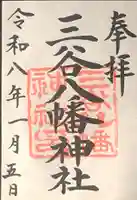 奉拝
三谷八幡神社
令和八年一月五日